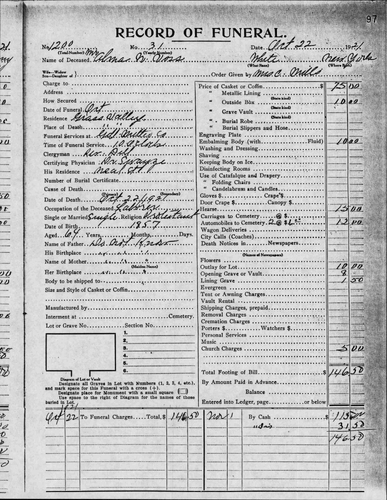 97
RECORD OF FUNERAL.
No. 1200 No. 31 Date, Oct 22 1921
(Total Number) (Yearly Number)
Name of Deceased Mrs White New York
(What Race) (Where Born)
Wife—Widow
Son—Daughter of Order Given by Mrs C. Mills
Charge to
Address
How Secured
Date of
Residence Grass Valley
Place of Death
Funeral Services at
Time of Funeral Service 10 o'clock
Clergyman Rev.
Certifying Physician
His Residence
Number of Burial Certificate
Cause of Death
Date of Death Oct 22 1921
Occupation of the Deceased
Single or Married Single Religion Protestant
Date of Birth 1857
Aged 64 Years, Months, Days
Name of Father Do Not Know
His Birthplace "
Name of Mother "
(Maiden Name)
Her Birthplace "
Body to be shipped to
Size and Style of Casket or Coffin
Manufactured by
Interment at Cemetery.
Lot or Grave No. Section No.
1.
2.
3.
4.
5.
6.
Diagram of Lot or Vault
Designate all Graves in Lot with Numbers (1, 2, 3, 4, etc.),
and mark space for this Funeral with a cross (+).
Designate place for Monument with a small square
Use space to the right of Diagram for the names of those
buried in Lot.
Price of Casket or Coffin $ 75 00
" Metallic Lining
" Outside Box 10 00
" Grave Vault
" Burial Robe
" Burial Slippers and Hose
Engraving Plate
Embalming Body (with Fluid) 10 00
Washing and Dressing
Shaving
Keeping Body on Ice
Disinfecting Rooms
Use of Catafalque and Drapery
" Folding Chairs
" Candelabrum and Candles
Gloves $ Crape $
Door Crape $ Canopy $
Hearse 15 00
Carriages to Cemetery @ $
Automobiles to Cemetery 2 @ $ 6 12 00
Wagon Deliveries
City Calls (Coaches)
Death Notices in Newspapers
(Names of Newspapers)
Flowers
Outlay for Lot 10 00
Opening Grave or Vault
Lining Grave 1 50
Evergreen
Tent or Awning Charges
Vault Rental
Shipping Charges, prepaid
Removal Charges
Cremation Charges
Porters $ Watchers $
Personal Charges
Music
Church Charges 5 00
Total Footing of Bill $ 146 50
By Amount Paid in Advance
Balance $
Entered into Ledger, page or below.
1921
Oct 22 To Funeral Charges Total, $ 146 50 Nov 1 By Cash $ 115 00
31 50
146 50